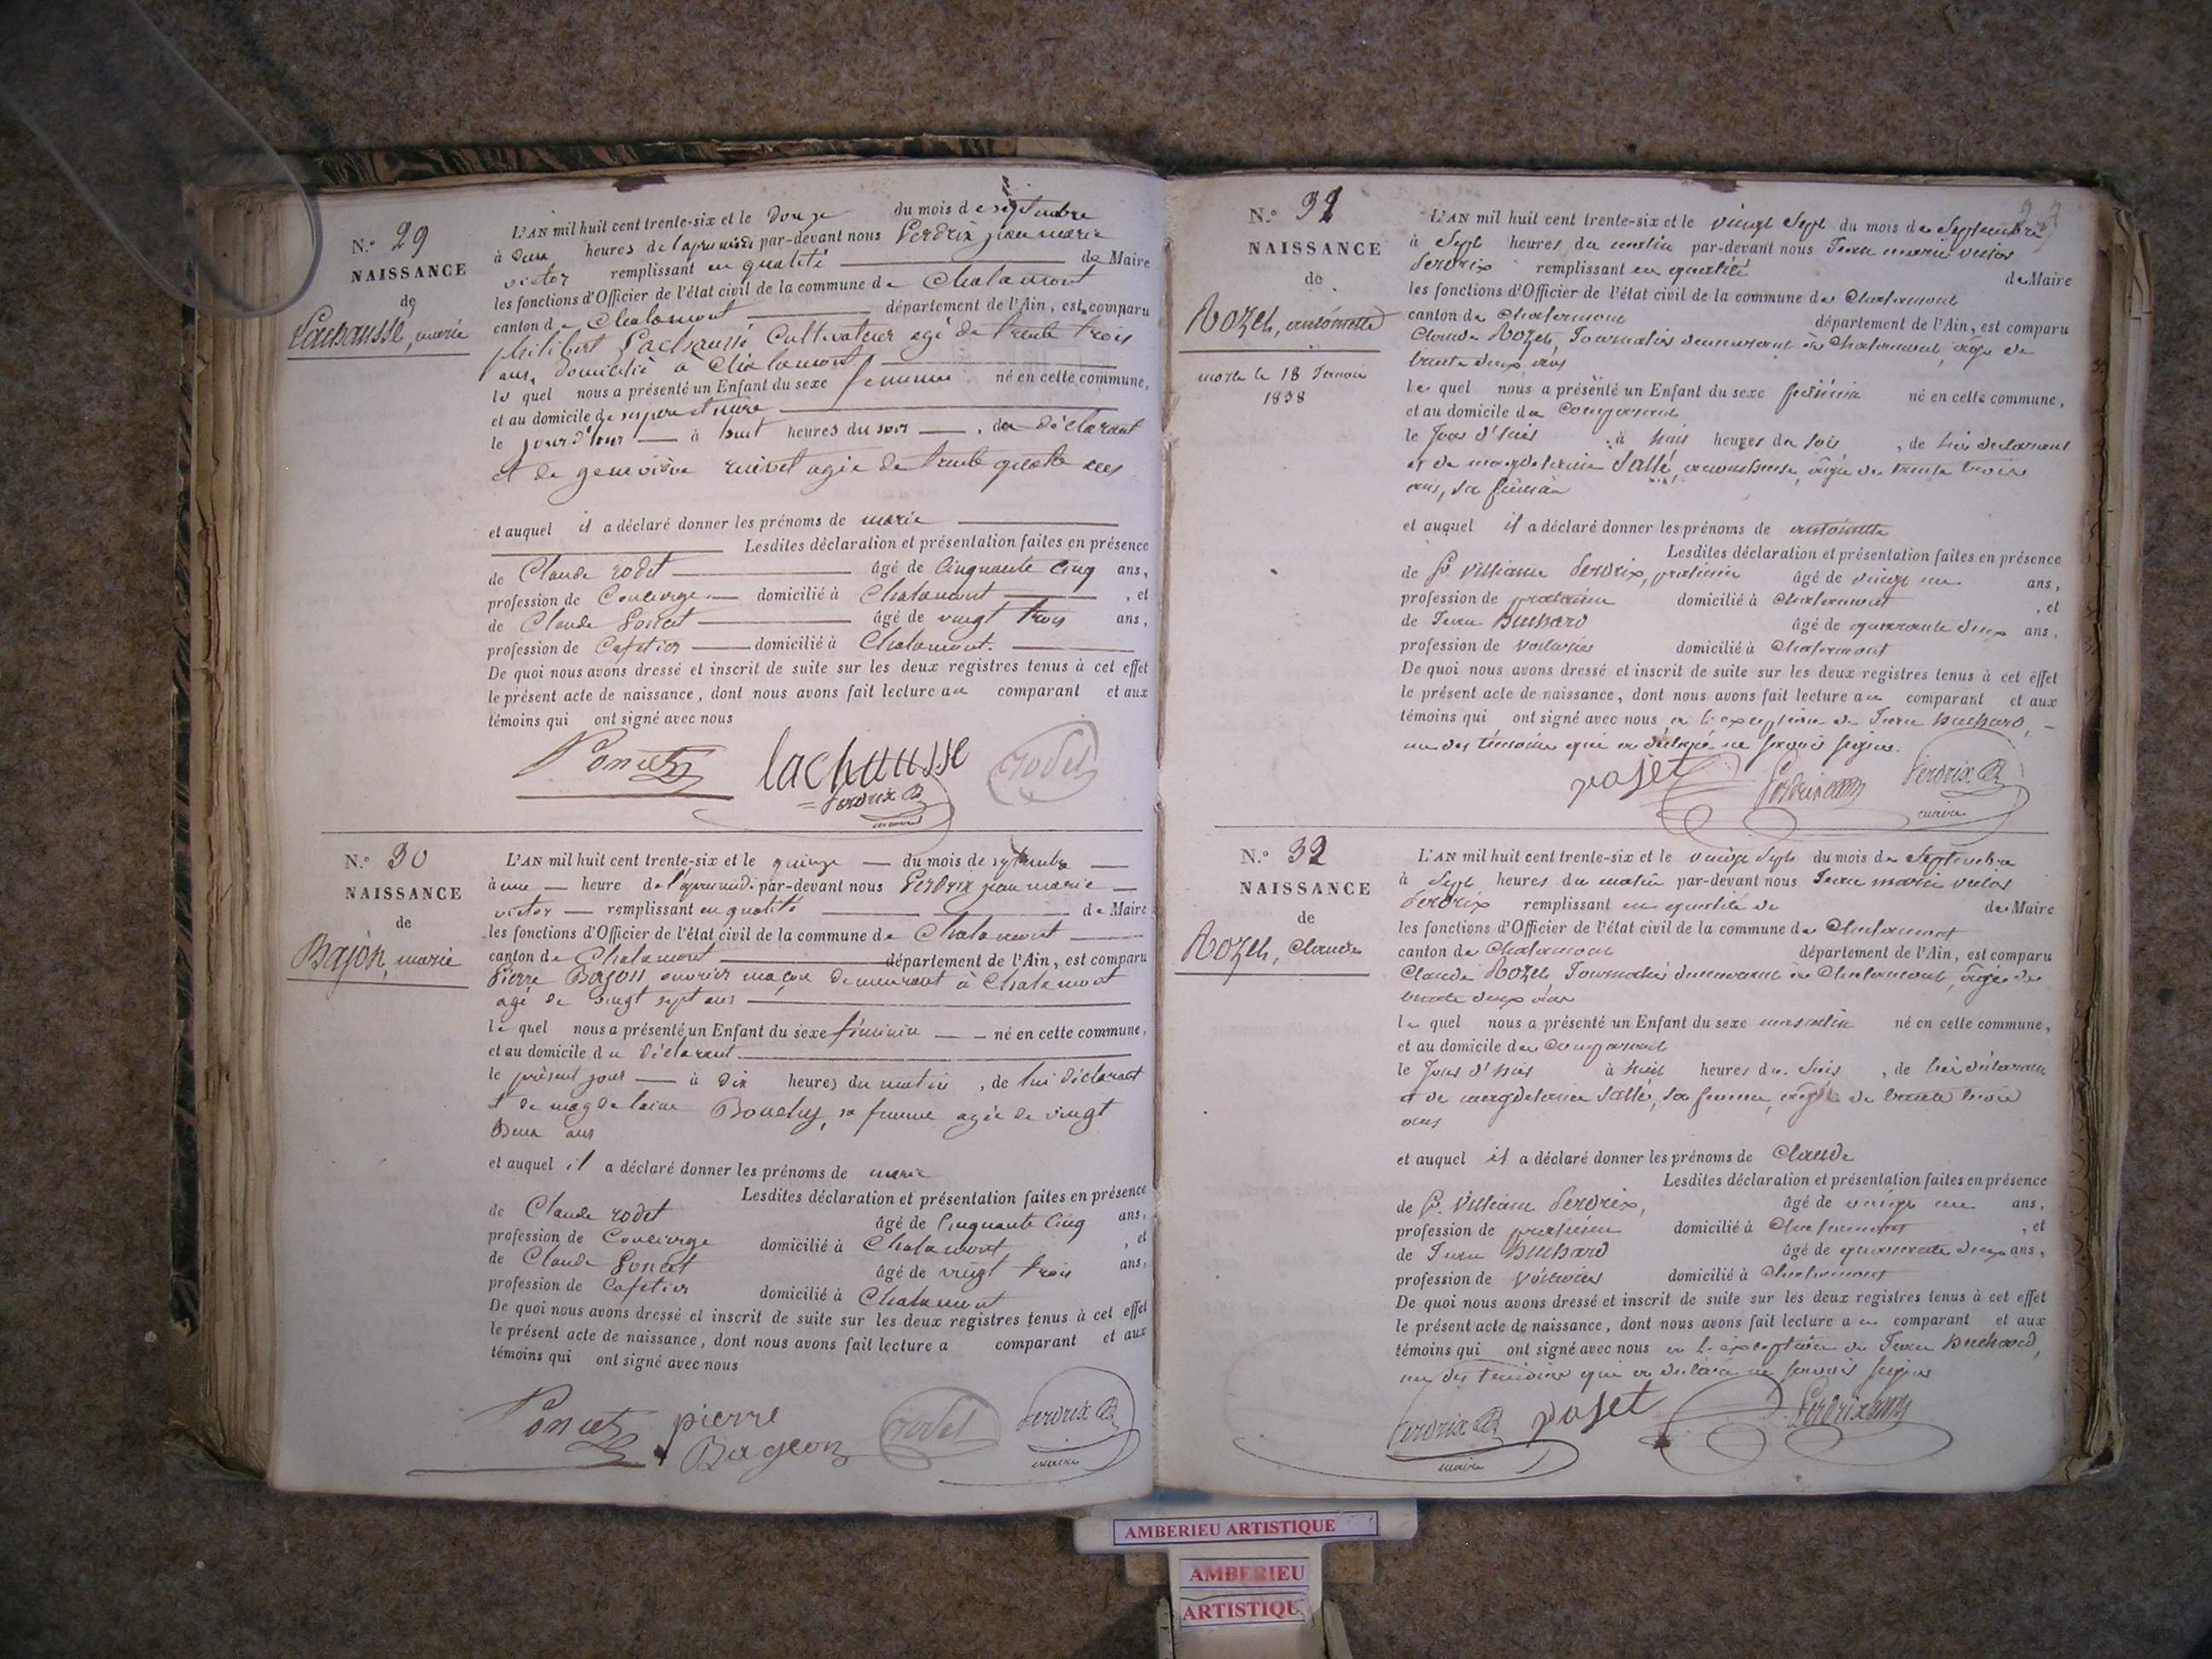 N.° 29
NAISSANCE
de
Lachausse, marie
L'AN mil huit cent trente-six et le douze du mois de septembre
à deux heures de l'apres midi par-devant nous Perdrix jean marie
victor remplissant en qualité de Maire
les fonctions d'Officier de l'état civil de la commune de Chalamont
canton de Chalamont département de l'Ain, est comparu
philibert Lachausse Cultivateur agé de trente trois
ans, domicilié à Chalamont
le quel nous a présenté un Enfant du sexe feminin né en cette commune,
et au domicile de ses pere et mere
le jour d'hier à huit heures du soir, du déclarant
et de geneviève agée de trente quatre ans
et auquel il a déclaré donner les prénoms de marie
Lesdites déclaration et présentation faites en présence
de Claude rodet âgé de Cinquante Cinq ans,
profession de Concierge domicilié à Chalamont, et
de Claude Poncet âgé de vingt trois ans,
profession de Cafetier domicilié à Chalamont.
De quoi nous avons dressé et inscrit de suite sur les deux registres tenus à cet effet
le présent acte de naissance, dont nous avons fait lecture au comparant et aux
témoins qui ont signé avec nous
Poncet lachausse rodet
Perdrix
maire
N.° 30
NAISSANCE
de
Bajon, marie
L'AN mil huit cent trente-six et le quinze du mois de septembre
à une heure de l'apres midi par-devant nous Perdrix jean marie
victor remplissant en qualité de Maire
les fonctions d'Officier de l'état civil de la commune de Chalamont
canton de Chalamont département de l'Ain, est comparu
Pierre Bajon ouvrier maçon demeurant à Chalamont
agé de vingt sept ans
le quel nous a présenté un Enfant du sexe féminin né en cette commune,
et au domicile du déclarant
le présent jour à dix heures du matin, de lui déclarant
et de magdelaine sa femme agée de vingt
deux ans
et auquel il a déclaré donner les prénoms de marie
Lesdites déclaration et présentation faites en présence
de Claude rodet âgé de Cinquante Cinq ans,
profession de Concierge domicilié à Chalamont, et
de Claude Poncet âgé de vingt trois ans,
profession de Cafetier domicilié à Chalamont
De quoi nous avons dressé et inscrit de suite sur les deux registres tenus à cet effet
le présent acte de naissance, dont nous avons fait lecture a comparant et aux
témoins qui ont signé avec nous
Poncet pierre Bageon rodet Perdrix
maire
N.° 31
NAISSANCE
de
Rozet, antoinette
morte le 18 Janvier
1838
L'AN mil huit cent trente-six et le vingt sept du mois de Septembre
à Sept heures du matin par-devant nous Jean marie victor
Perdrix remplissant en qualité de Maire
les fonctions d'Officier de l'état civil de la commune de Chalamont
canton de Chalamont département de l'Ain, est comparu
Claude Rozet, Journalier demeurant à Chalamont, âgé de
trente deux ans
le quel nous a présenté un Enfant du sexe féminin né en cette commune,
et au domicile du Comparant
le Jour d'hier à huit heures du soir, de lui déclarant
et de magdelaine Sallé, accoucheuse, âgée de trente trois
ans, sa femme
et auquel il a déclaré donner les prénoms de antoinette
Lesdites déclaration et présentation faites en présence
de Perdrix, praticien âgé de vingt un ans,
profession de praticien domicilié à Chalamont, et
de Jean Buchard âgé de quarante deux ans,
profession de voiturier domicilié à Chalamont
De quoi nous avons dressé et inscrit de suite sur les deux registres tenus à cet effet
le présent acte de naissance, dont nous avons fait lecture au comparant et aux
témoins qui ont signé avec nous à l'exception de Jean Buchard,
un des témoins qui a déclaré ne savoir signer.
roset Perdrix Perdrix
maire
N.° 32
NAISSANCE
de
Rozet, Claude
L'AN mil huit cent trente-six et le vingt Sept du mois de Septembre
à Sept heures du matin par-devant nous Jean marie victor
Perdrix remplissant en qualité de de Maire
les fonctions d'Officier de l'état civil de la commune de Chalamont
canton de Chalamont département de l'Ain, est comparu
Claude Rozet Journalier demeurant à Chalamont, âgé de
trente deux ans
le quel nous a présenté un Enfant du sexe masculin né en cette commune,
et au domicile du Comparant
le Jour d'hier à huit heures du soir, de lui déclarant
et de magdelaine Sallé, sa femme, âgée de trente trois
ans
et auquel il a déclaré donner les prénoms de Claude
Lesdites déclaration et présentation faites en présence
de Perdrix, âgé de vingt un ans,
profession de praticien domicilié à Chalamont, et
de Jean Buchard âgé de quarante deux ans,
profession de Voiturier domicilié à Chalamont
De quoi nous avons dressé et inscrit de suite sur les deux registres tenus à cet effet
le présent acte de naissance, dont nous avons fait lecture au comparant et aux
témoins qui ont signé avec nous à l'exception de Jean Buchard,
un des témoins qui a déclaré ne savoir signer
Perdrix roset Perdrix
maire
AMBERIEU ARTISTIQUE
AMBERIEU
ARTISTIQU